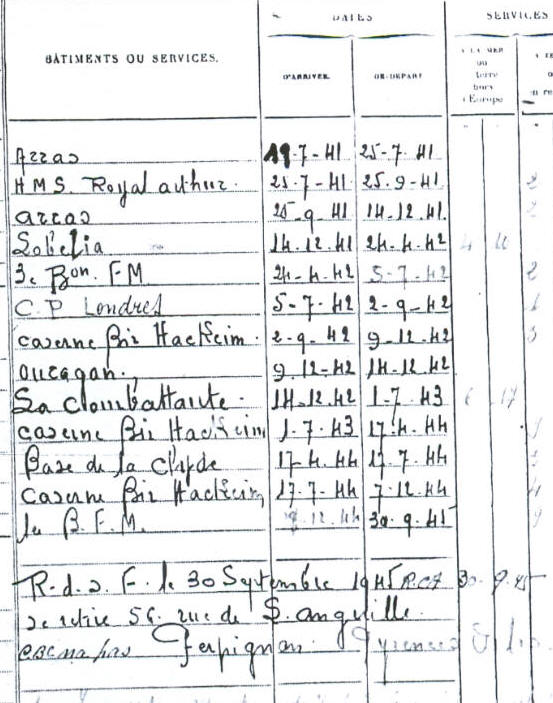 DATES SERVICES
BÂTIMENTS OU SERVICES.
D'ARRIVÉE DE DÉPART
A LA MER
ou
terre
hors
d'Europe
Arras 19-7-41 25-7-41
H.M.S. Royal arthur. 25-7-41 25.9-41 2
arras 25-9-41 14-12.41. 2
Lobélia 14.12.41 24-4-42 4
3e Bon. F M 24-4-42 5-7-42 2
C.P Londres 5-7-42 2-9-42
caserne Bir Hacheim. 2-9.42 9-12-42 3
ouragan. 9.12-42 14-12.42
La Combattante. 14-12.42 1-7.43 6 17
caserne Bir Hacheim 1-7-43 17-4-44
Base de la Clyde 17-4.44 17.7-44
Caserne Bir Hacheim, 17-7-44 7-12.44
1e B.F.M. 12.44 30-9.45
R.d.s. F. le 30 Septembre 1945 30-9.45
se retire 56. rue de S.
Perpignan. Pyrénées